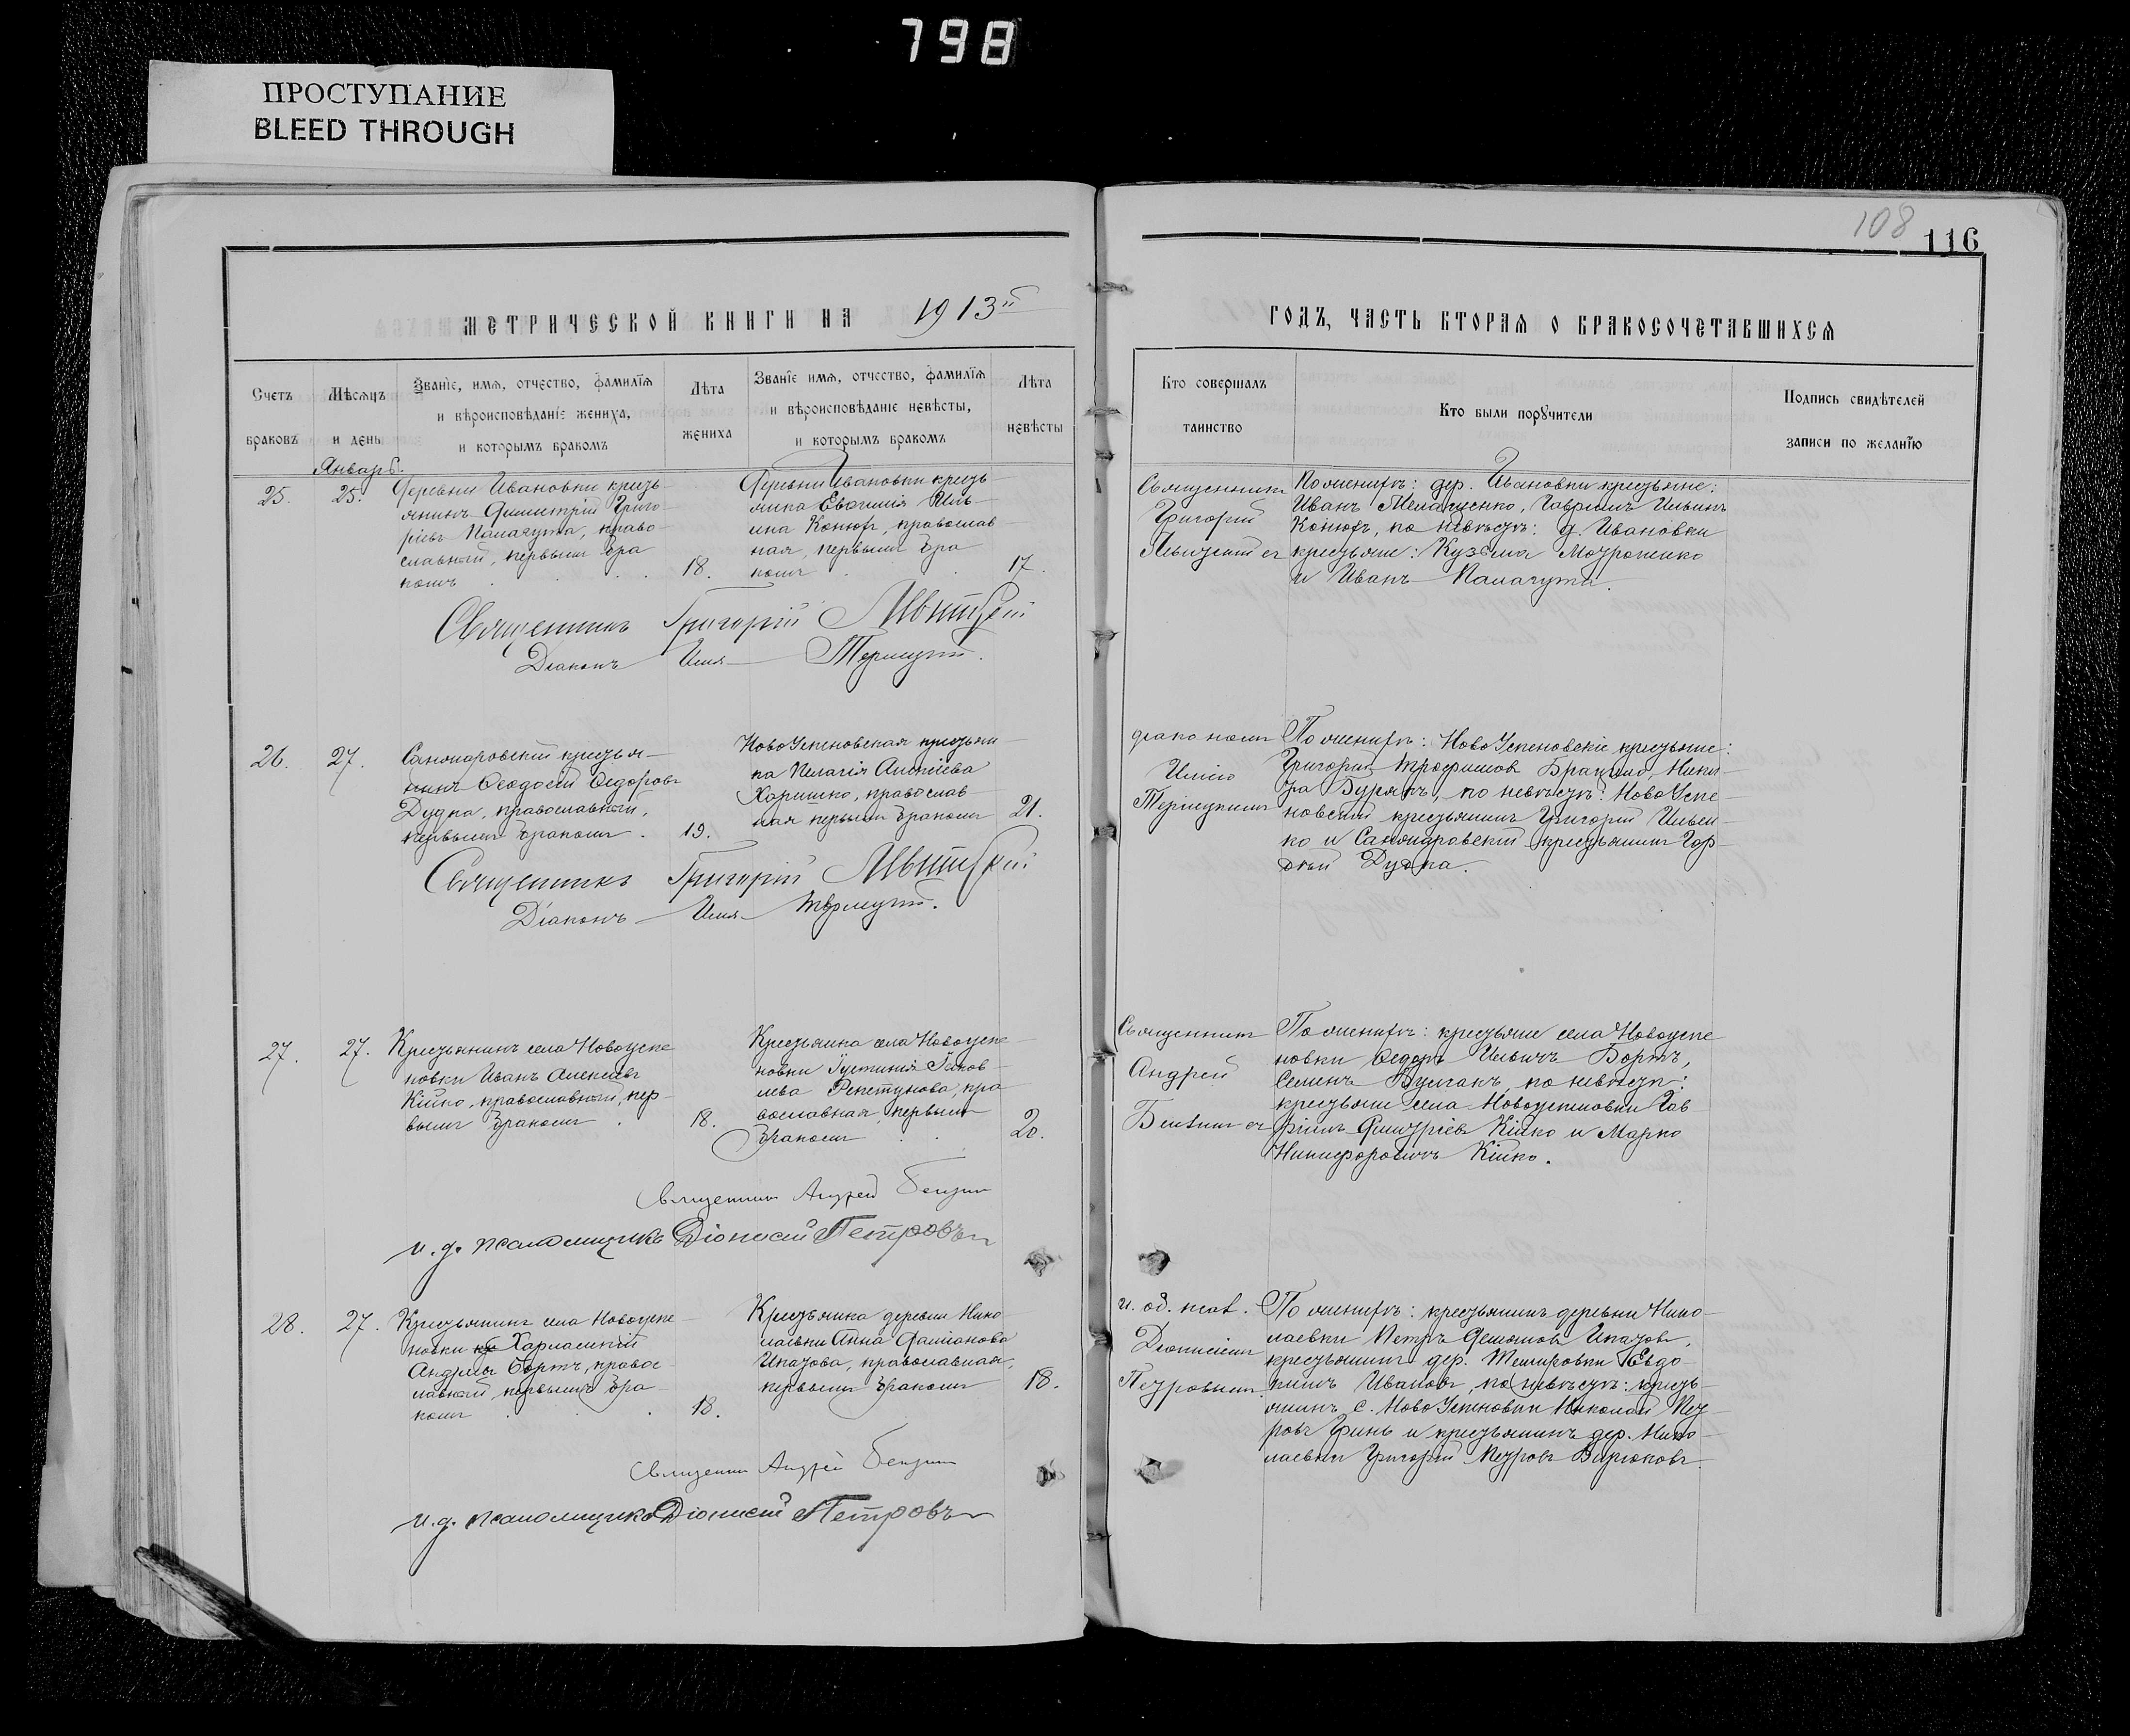 798
ПРОСТУПАНИЕ
BLEED THROUGH
108
116
МЕТРИЧЕСКОЙ КНИГИ НА 1913й
ГОДЪ, ЧАСТЬ ВТОРАЯ О БРАКОСОЧЕТАВШИХСЯ
Счетъ браковъ
Мѣсяцъ и день
Званіе, имя, отчество, фамилія и вѣроисповѣданіе жениха, и которымъ бракомъ
Лѣта жениха
Званіе имя, отчество, фамилія и вѣроисповѣданіе невѣсты, и которымъ бракомъ
Лѣта невѣсты
Кто совершалъ таинство
Кто были поручители
Подпись свидѣтелей записи по желанію
Январь.
25.
25.
Деревни Ивановки кресть-
янинъ Димитрій Григо-
ріевъ Палагута, право-
славный, первымъ бра
комъ
18.
Деревни Ивановки кресть-
янка Евгенія Иль-
ина Конюх, православ
ная, первымъ бра
комъ
17.
Священник
Григорий
По женихѣ: дер. Ивановки крестьяне:
Иванъ, Гавриилъ Ильинъ
Конюхъ, по невѣстѣ: д. Ивановки
крестьяне: Кузьма
и Иванъ Палагута.
Священникъ Григорій Левитскій
Діаконъ Илія
26.
27.
крестья-
нинъ Ѳеодосій Ѳедоровъ
Дудка, православный,
первымъ бракомъ.
19.
НовоУспеновская крестьян-
ка Пелагія
Харитко, православ-
ная первымъ бракомъ
21.
діакономъ
Иліею
По женихѣ: НовоУспеновскіе крестьяне:
Григорий Трофимов, Ники-
та Бурякъ, по невѣстѣ: НовоУспе-
новский крестьянинъ Григорий Ильен-
ко и крестьянин Гор-
дѣй Дудка.
Священникъ Григорій Левитскій
Діаконъ Илія
27.
27.
Крестьянинъ села Новоуспе
новки Иванъ Алексѣевъ
Кійко, православный, пер-
вымъ бракомъ
18.
Крестьянка села Новоуспе-
новки Іустинія Іаков-
лева Репетунова, пра
вославная, первымъ
бракомъ
20.
Священник
Андрей
По женихѣ: крестьяне села Новоуспе
новки Ѳедоръ Ильичъ Бортъ,
Семенъ Булганъ, по невѣсте:
крестьяне села Новоуспеновки Гав
ріилъ Дмитріев Кійко и Марко
Никифоровичъ Кійко.
Священник Андрей
и. д. псаломщика Діонисій Петровъ
28.
27.
Крестьянинъ села Новоуспе-
новки Харлампій
Андреев Бортъ, правос-
лавный, первымъ бра
комъ
18.
Крестьянка деревни Нико-
лаевки Анна Даміанова
Игнатова, православная,
первымъ бракомъ
18.
Діонисіемъ
Петровым.
По женихѣ: крестьянинъ деревни Нико-
лаевки Петръ Демьянов Игнатов,
крестьянинъ дер. Темировки Евдо-
кимъ Иванов, по невѣстѣ: кресть-
янинъ с. НовоУспеновки Николай Пет-
ровъ Гринь и крестьянинъ дер. Нико-
лаевки Григорий Петровъ Бирюковъ.
Священник Андрей
и. д. псаломщика Діонисій Петровъ